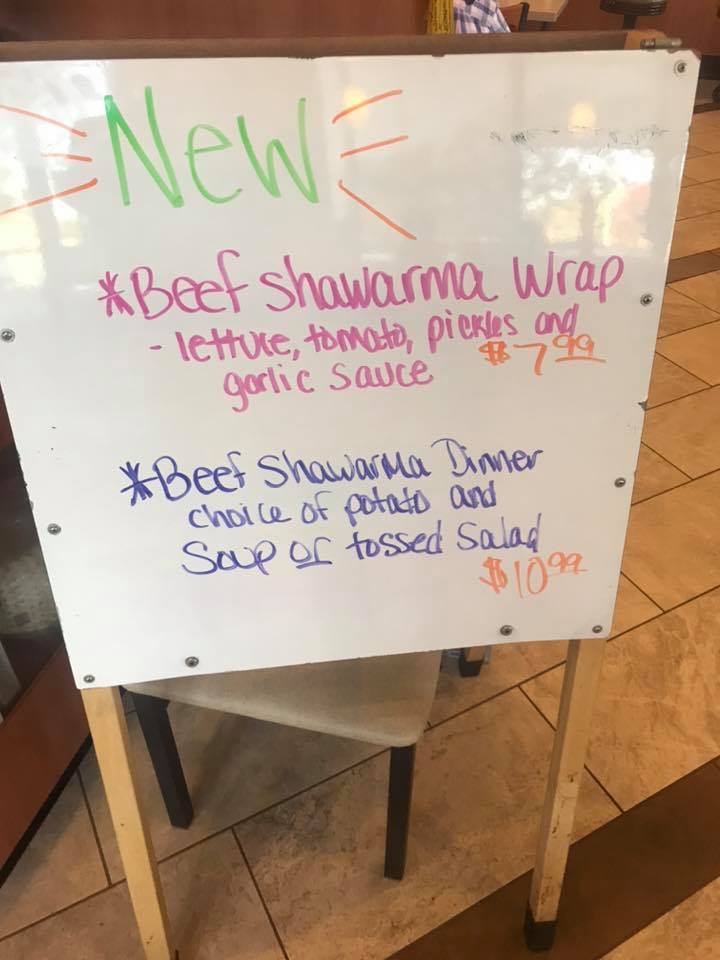 New
*Beef Shawarma Wrap
- lettuce, tomato, pickles and
garlic sauce $7.99
*Beef Shawarma Dinner
choice of potato and
Soup or tossed Salad
$10.99